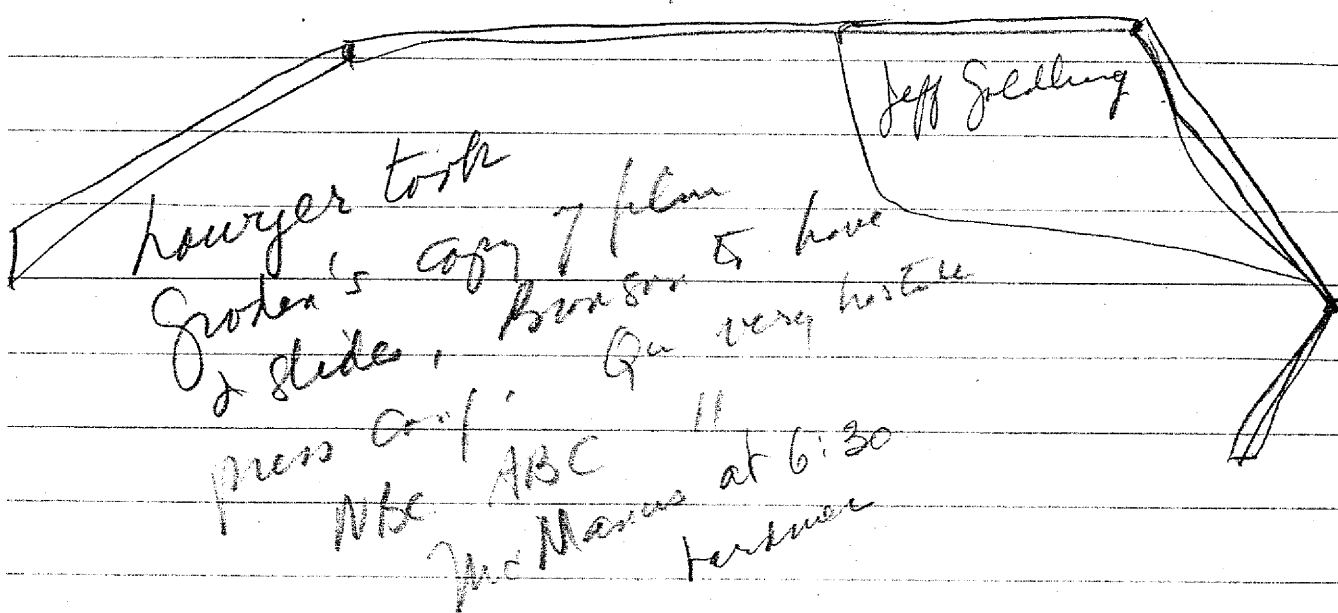 Jeff Goldberg
Lawyer took
Groden's copy of film
& slides, Bronson to have
press conf. Qu very hostile
NBC ABC "
McManus at 6:30